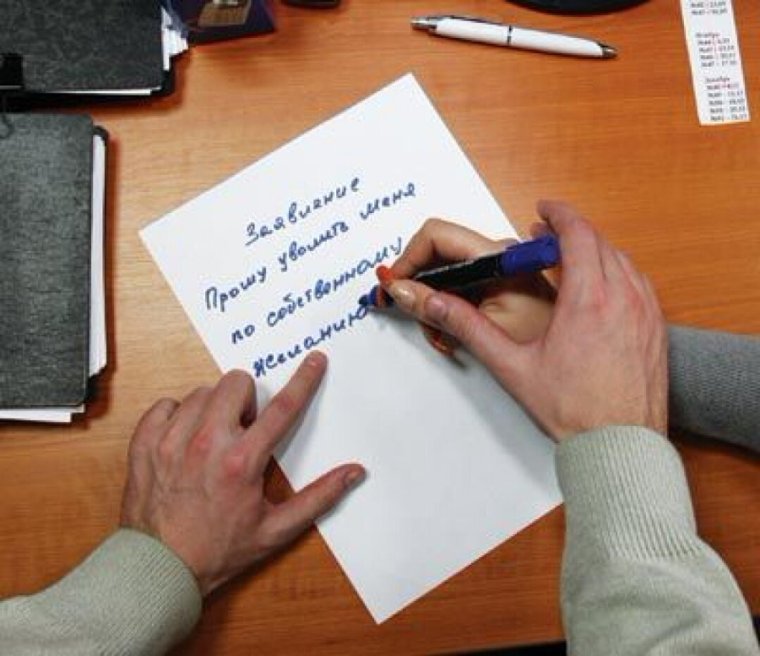 Заявление
Прошу уволить меня
по собственному
желанию